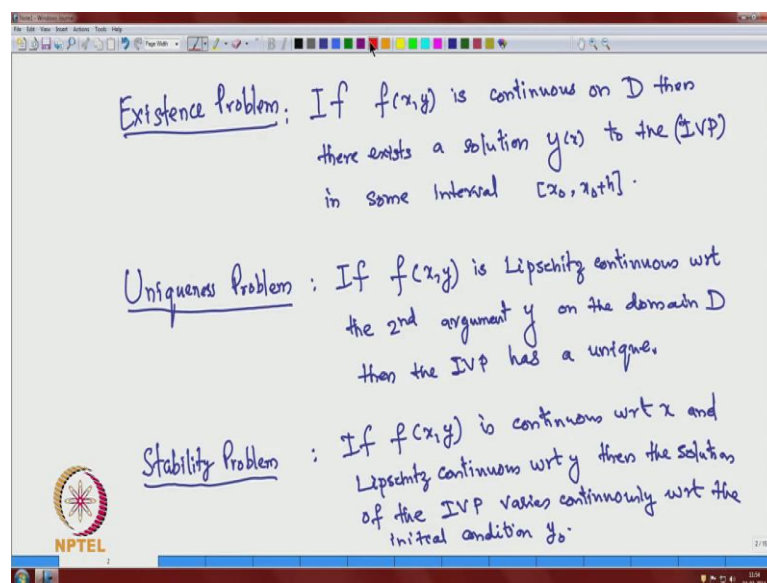 Note1 - Windows Journal
File Edit View Insert Actions Tools Help
Page Width
Existence Problem: If f(x,y) is continuous on D then
there exists a solution y(x) to the (IVP)
in some interval [x₀, x₀+h].
Uniqueness Problem : If f(x,y) is Lipschitz continuous wrt
the 2nd argument y on the domain D
then the IVP has a unique.
Stability Problem : If f(x,y) is continuous wrt x and
Lipschitz continuous wrt y then the solution
of the IVP varies continuously wrt the
initial condition y₀.
NPTEL
2
11:54